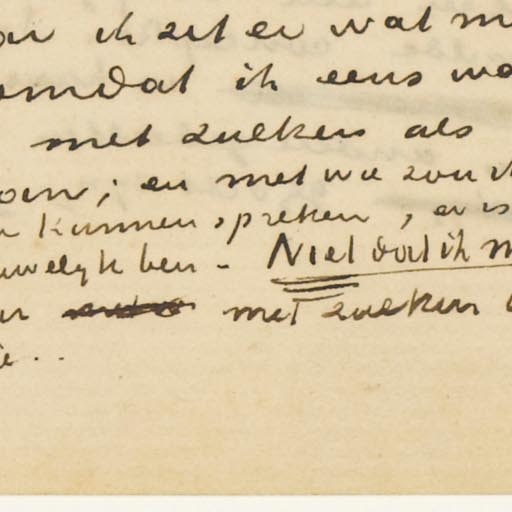 ik zet er wat m
omdat ik eens wa
met zulken als
; en met wie zou ik
kunnen spreken, er is
uwelijk ben - Niet dat ik m
met zulken
..